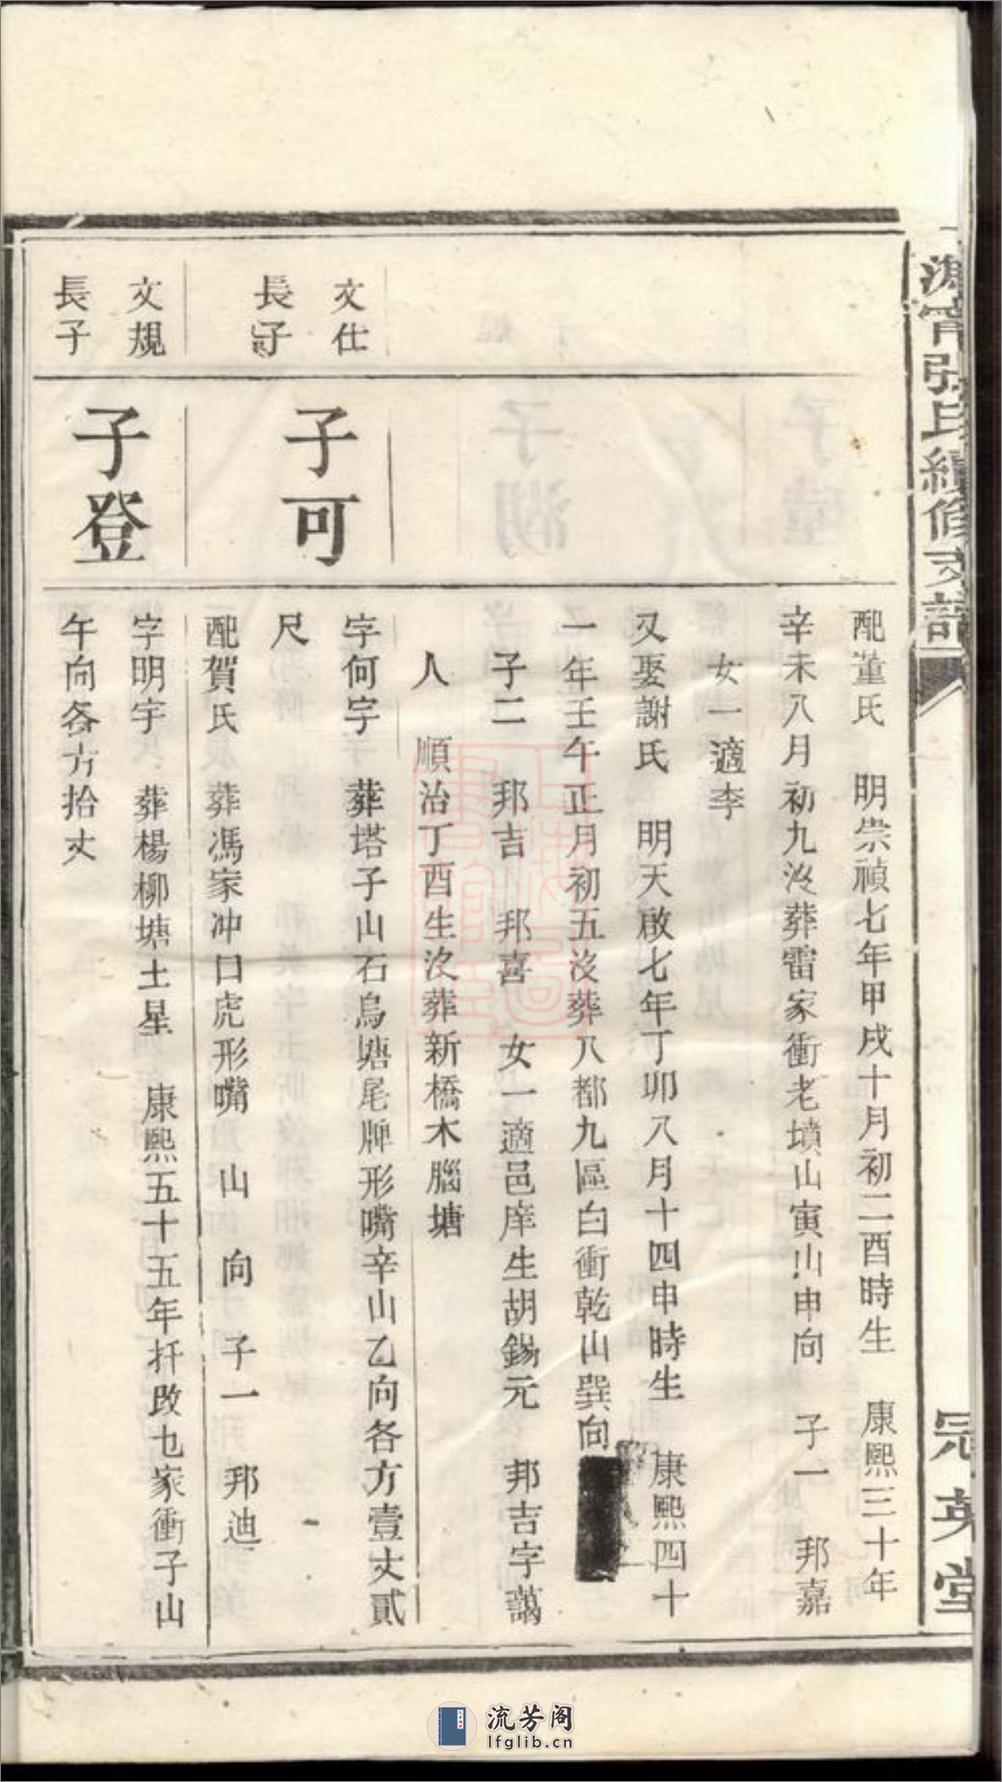 寧張氏續修支譜
冠英堂
配董氏 明崇禎七年甲戌十月初二酉時生 康熙三十年
辛未八月初九沒葬雷家衝老墳山寅山申向 子一 邦嘉
女一適李
又娶謝氏 明天啟七年丁卯八月十四申時生 康熙四十
一年壬午正月初五沒葬八都九區白衝乾山巽向
子二 邦吉 邦喜 女一適邑庠生胡錫元 邦吉字藹
人 順治丁酉生沒葬新橋木腦塘
文仕
長子
子可
字何字 葬塔子山石烏塘尾牌形嘴辛山乙向各方壹丈貳
尺
配賀氏 葬馮家冲口虎形嘴 山 向 子一 邦迪
文規
長子
子登
字明宇 葬楊柳塘土星 康熙五十五年扦改乜家衝子山
午向各方拾丈
流芳阁
lfglib.cn